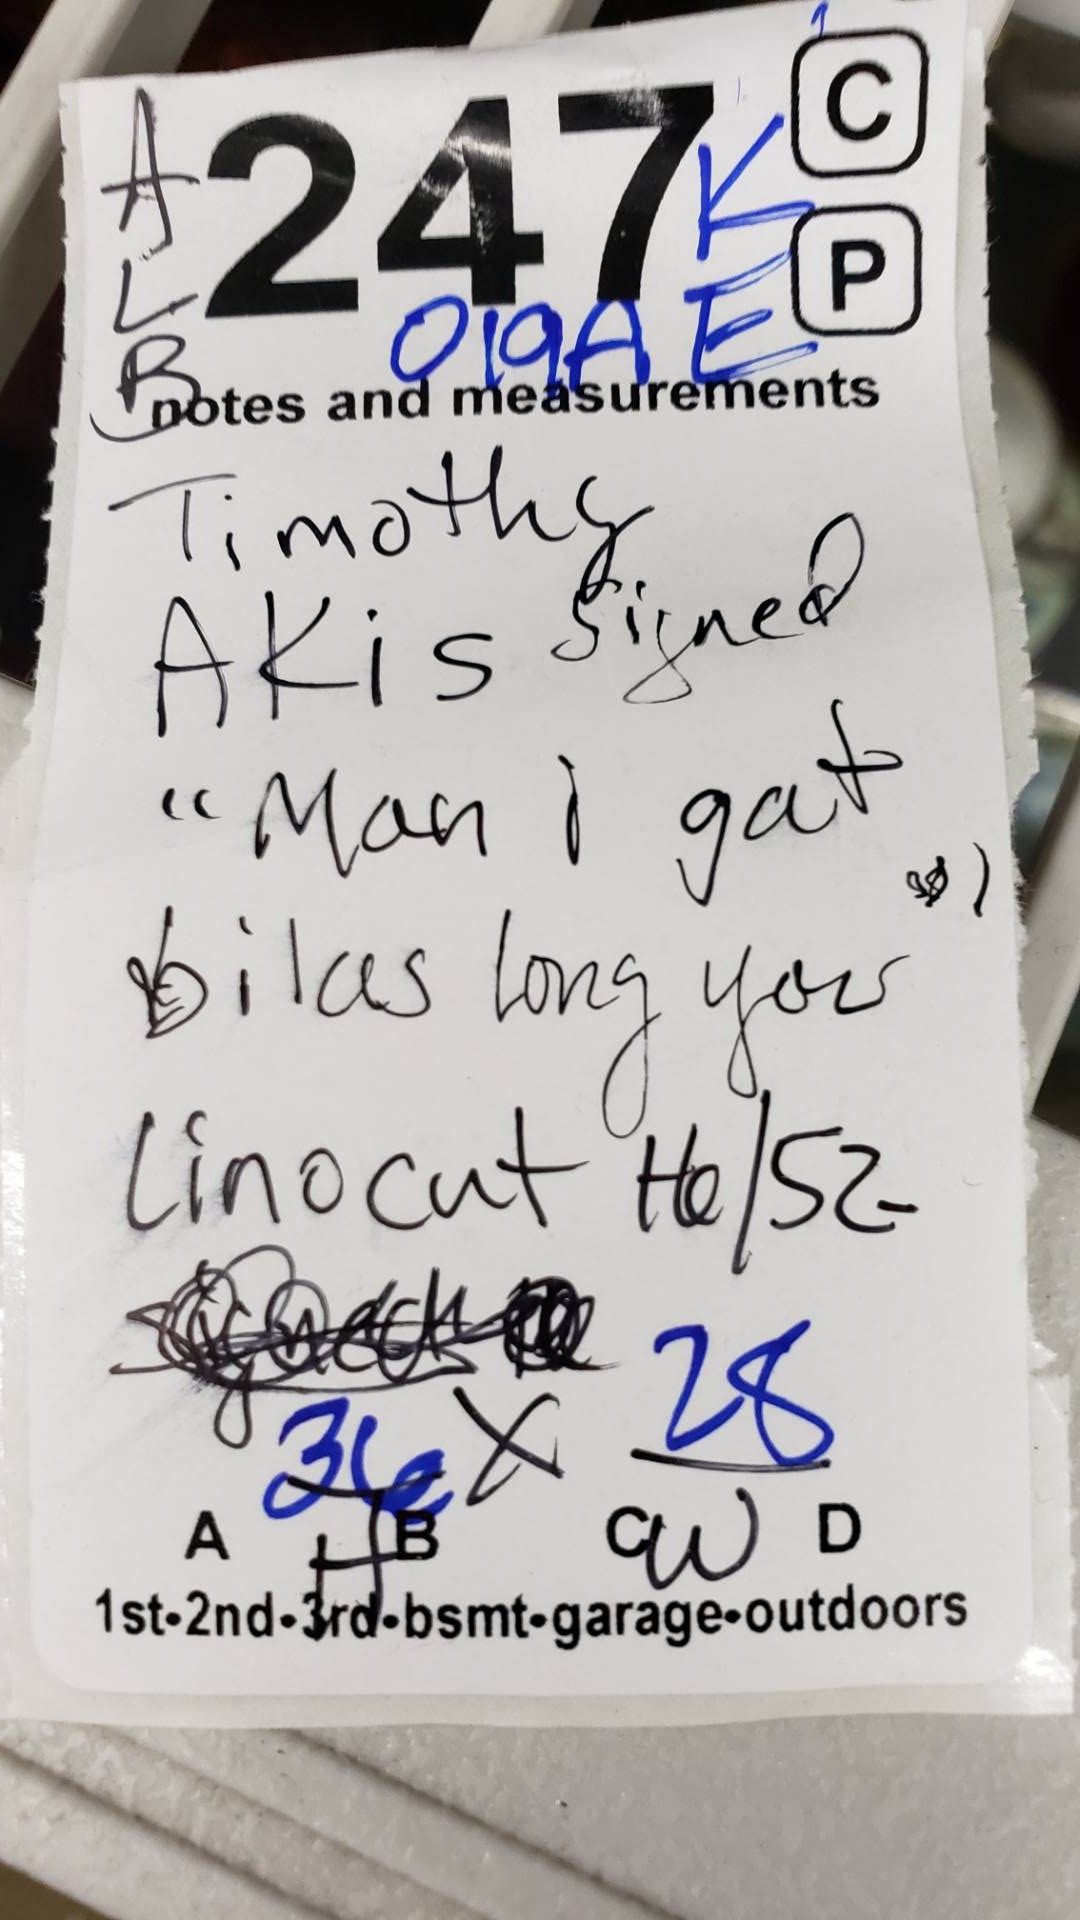 A 247 K C
L E P
B 019A
notes and measurements
Timothy
AKis signed
"Man i gat
bilas long yow"
Linocut /52
36 X 28
H W
A B C D
1st•2nd•3rd•bsmt•garage•outdoors